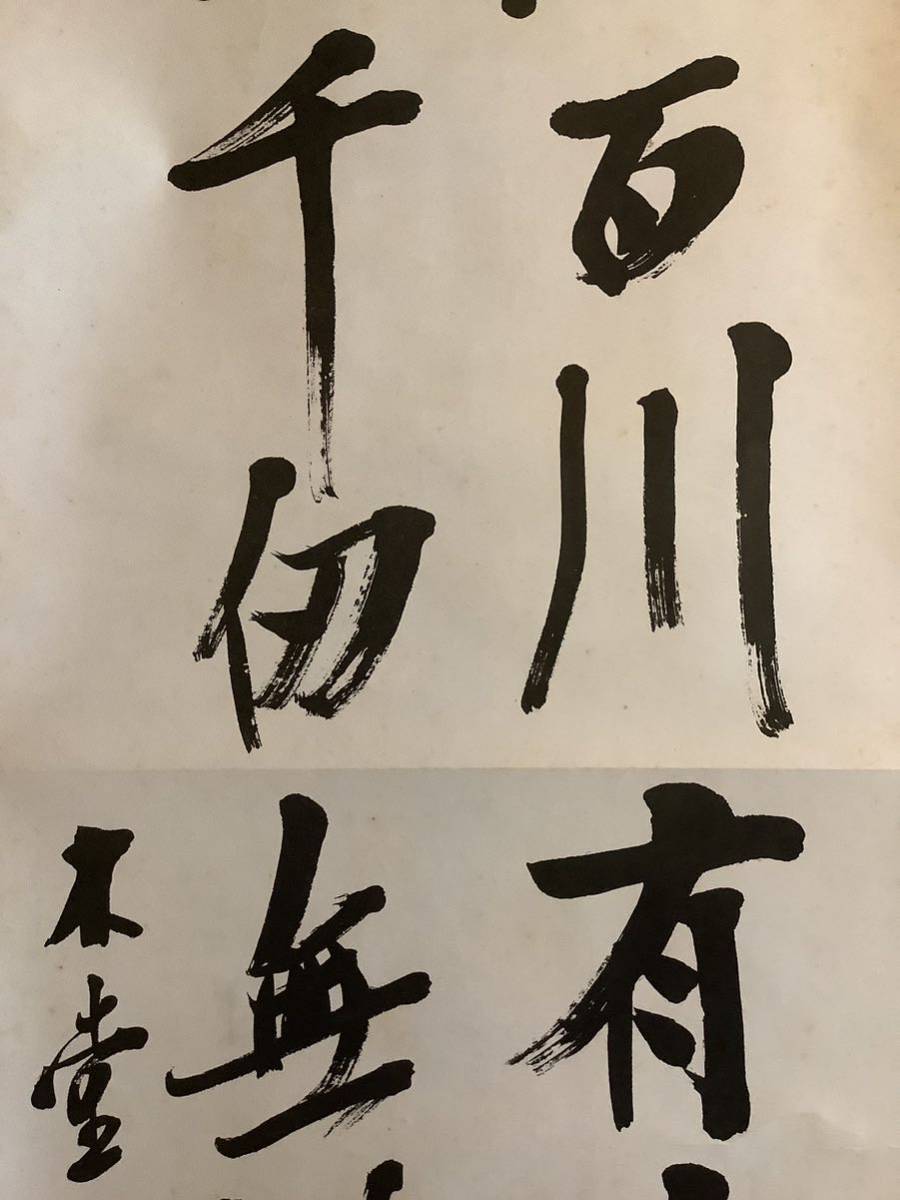 百川有
千仞無
木堂